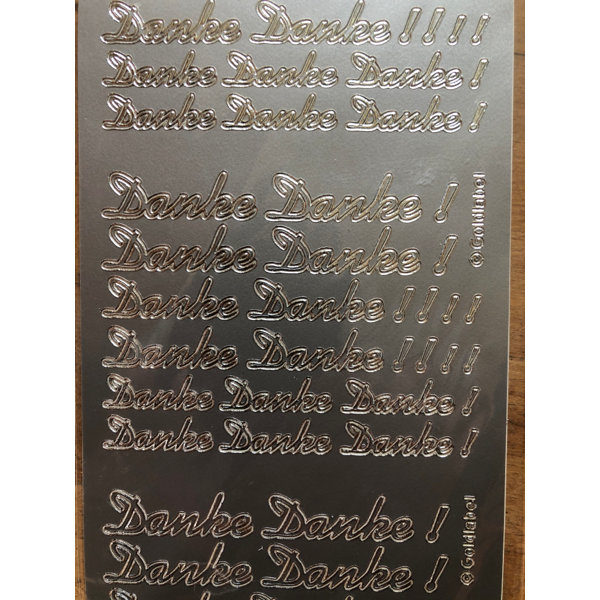 Danke Danke ! ! ! !
Danke Danke Danke !
Danke Danke Danke !
Danke Danke !
Danke Danke !
Danke Danke ! ! ! !
Danke Danke ! ! ! !
Danke Danke Danke !
Danke Danke Danke !
© Goldlabel
Danke Danke !
Danke Danke !
© Goldlabel